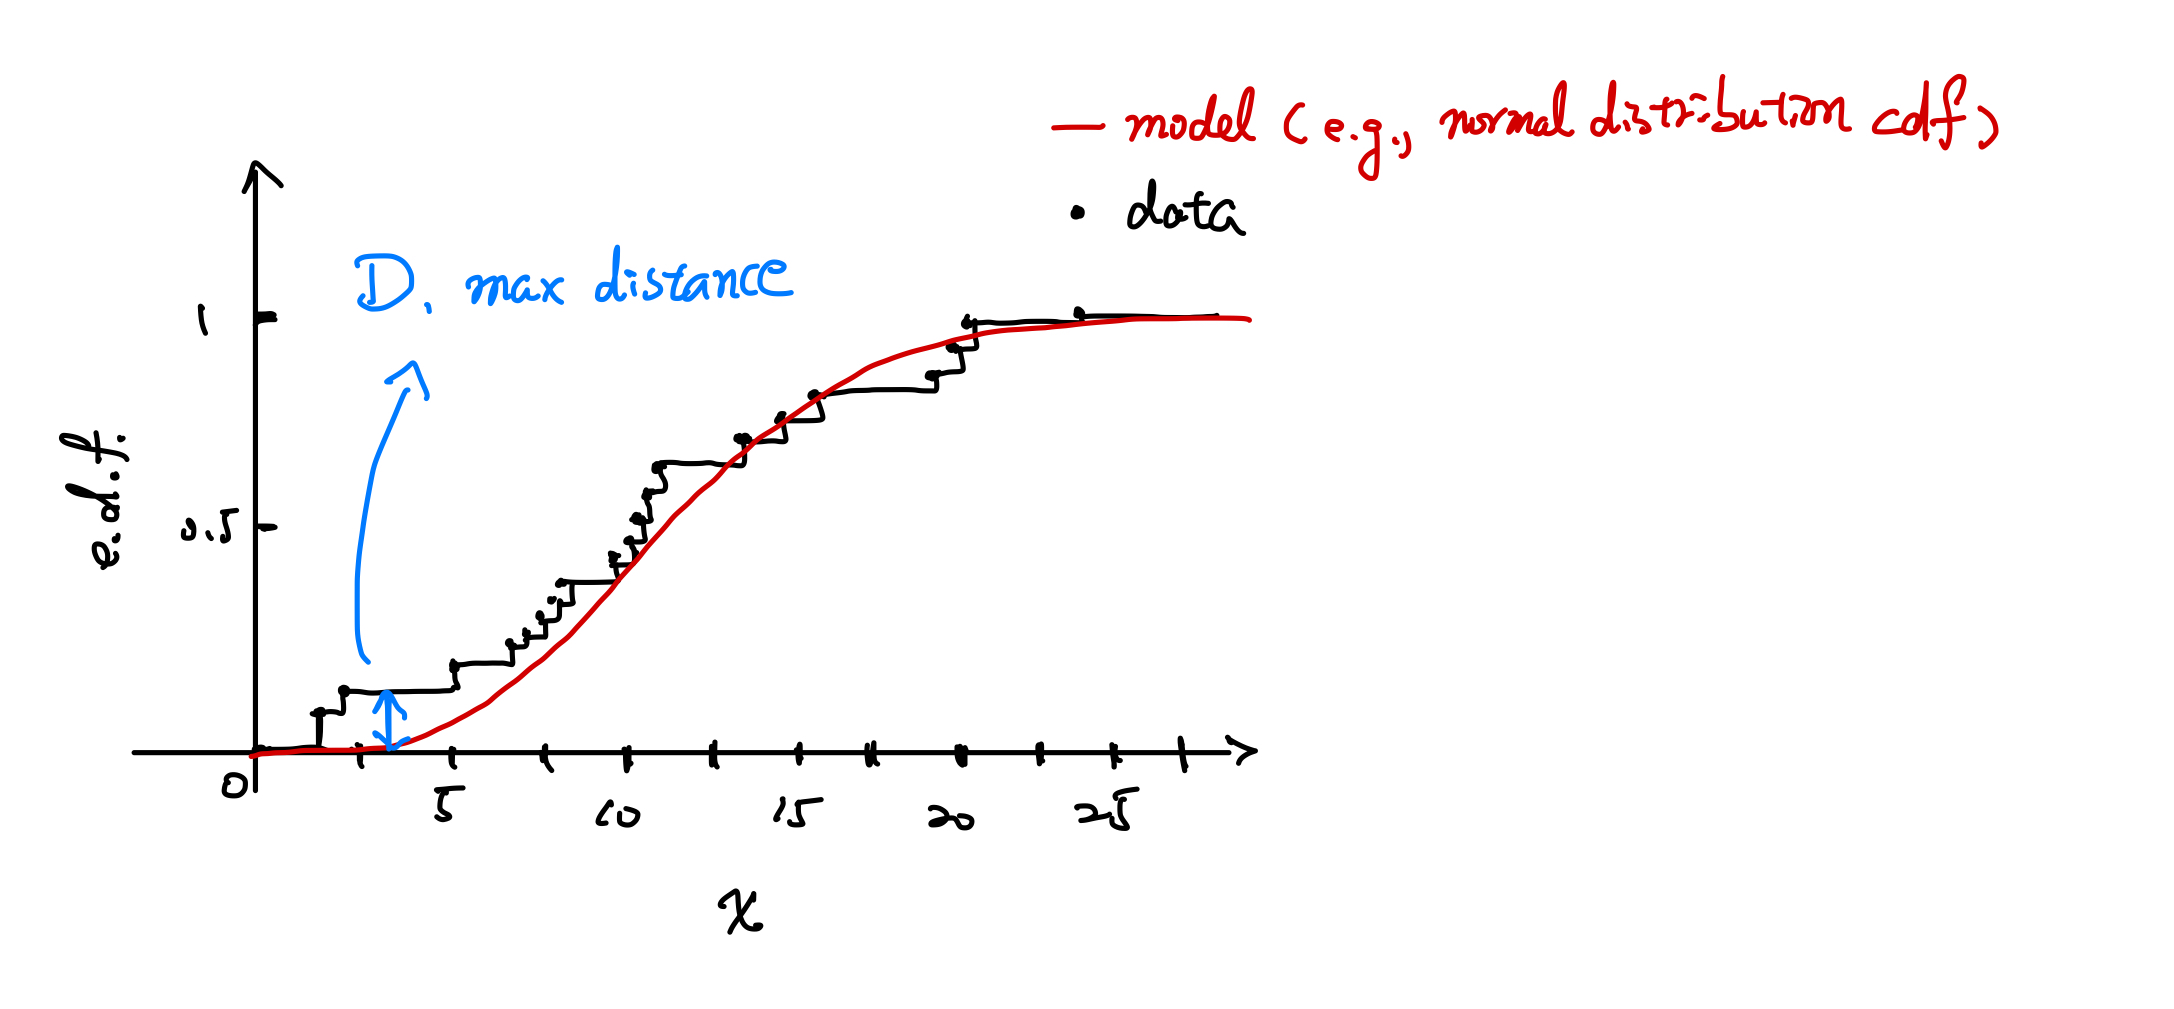 — model (e.g., normal distribution cdf)
• data
D, max distance
1
0.5
e.d.f.
0
5
10
15
20
25
x